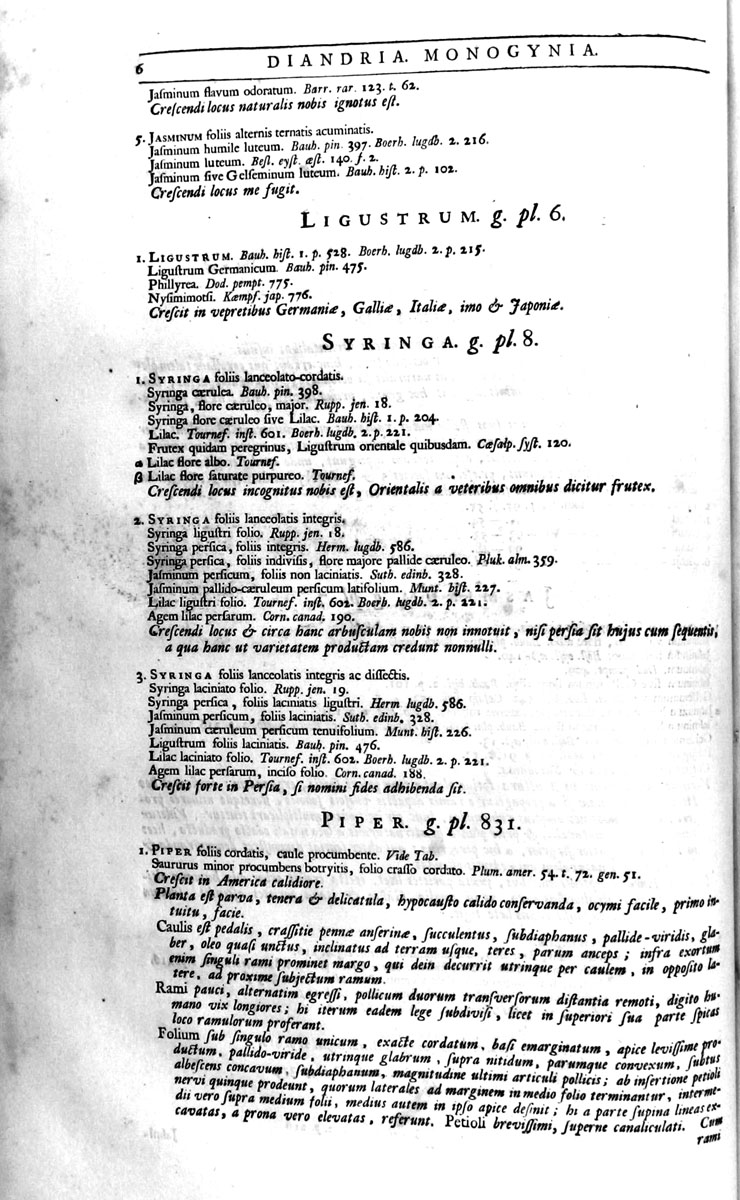 6
DIANDRIA. MONOGYNIA.
Jaſminum flavum odoratum. Barr. rar. 123. t. 62.
Creſcendi locus naturalis nobis ignotus eſt.
5. JASMINUM foliis alternis ternatis acuminatis.
Jaſminum humile luteum. Bauh. pin. 397. Boerh. lugdb. 2. 216.
Jaſminum luteum. Beſl. eyſt. æſt. 140. f. 2.
Jaſminum ſive Gelſeminum luteum. Bauh. hiſt. 2. p. 102.
Creſcendi locus me fugit.
LIGUSTRUM. g. pl. 6.
1. LIGUSTRUM. Bauh. hiſt. 1. p. 528. Boerh. lugdb. 2. p. 215.
Liguſtrum Germanicum. Bauh. pin. 475.
Phillyrea. Dod. pempt. 775.
Nyſimimotſi. Kæmpf. jap. 776.
Creſcit in vepretibus Germaniæ, Galliæ, Italiæ, imo & Japoniæ.
SYRINGA. g. pl. 8.
1. SYRINGA foliis lanceolato-cordatis.
Syringa cærulea. Bauh. pin. 398.
Syringa, flore cæruleo, major. Rupp. jen. 18.
Syringa flore cæruleo ſive Lilac. Bauh. hiſt. 1. p. 204.
Lilac. Tournef. inſt. 601. Boerh. lugdb. 2. p. 221.
Frutex quidam peregrinus, Liguſtrum orientale quibusdam. Cæſalp. ſyſt. 120.
α Lilac flore albo. Tournef.
β Lilac flore ſaturate purpureo. Tournef.
Creſcendi locus incognitus nobis eſt, Orientalis a veteribus omnibus dicitur frutex.
2. SYRINGA foliis lanceolatis integris.
Syringa liguſtri folio. Rupp. jen. 18.
Syringa perſica, foliis integris. Herm. lugdb. 586.
Syringa perſica, foliis indiviſis, flore majore pallide cæruleo. Pluk. alm. 359.
Jaſminum perſicum, foliis non laciniatis. Suth. edinb. 328.
Jaſminum pallido-cæruleum perſicum latifolium. Munt. hiſt. 227.
Lilac liguſtri folio. Tournef. inſt. 602. Boerh. lugdb. 2. p. 221.
Agem lilac perſarum. Corn. canad. 190.
Creſcendi locus & circa hanc arbuſculam nobis non innotuit, niſi perſia ſit hujus cum ſequentis,
a qua hanc ut varietatem productam credunt nonnulli.
3. SYRINGA foliis lanceolatis integris ac diſſectis.
Syringa laciniato folio. Rupp. jen. 19.
Syringa perſica, foliis laciniatis liguſtri. Herm lugdb. 586.
Jaſminum perſicum, foliis laciniatis. Suth. edinb. 328.
Jaſminum cæruleum perſicum tenuifolium. Munt. hiſt. 226.
Liguſtrum foliis laciniatis. Bauh. pin. 476.
Lilac laciniato folio. Tournef. inſt. 602. Boerh. lugdb. 2. p. 221.
Agem lilac perſarum, inciſo folio. Corn. canad. 188.
Creſcit forte in Perſia, ſi nomini fides adhibenda ſit.
PIPER. g. pl. 831.
1. PIPER foliis cordatis, caule procumbente. Vide Tab.
Saururus minor procumbens botryitis, folio craſſo cordato. Plum. amer. 54. t. 72. gen. 51.
Creſcit in America calidiore.
Planta eſt parva, tenera & delicatula, hypocauſto calido conſervanda, ocymi facile, primo in-
tuitu, facie.
Caulis eſt pedalis, craſſitie pennæ anſerinæ, ſucculentus, ſubdiaphanus, pallide-viridis, gla-
ber, oleo quaſi unctus, inclinatus ad terram uſque, teres, parum anceps; infra exortum
enim ſinguli rami prominet margo, qui dein decurrit utrinque per caulem, in oppoſito la-
tere, ad proxime ſubjectum ramum.
Rami pauci, alternatim egreſſi, pollicum duorum transverſorum diſtantia remoti, digito hu-
mano vix longiores; hi iterum eadem lege ſubdiviſi, licet in ſuperiori ſua parte ſpicas
loco ramulorum proferant.
Folium ſub ſingulo ramo unicum, exacte cordatum, baſi emarginatum, apice leviſſime pro-
ductum, pallido-viride, utrinque glabrum, ſupra nitidum, parumque convexum, ſubtus
albeſcens concavum, ſubdiaphanum, magnitudine ultimi articuli pollicis; ab inſertione petioli
nervi quinque prodeunt, quorum laterales ad marginem in medio folio terminantur, interme-
dii vero ſupra medium folii, medius autem in ipſo apice deſinit; hi a parte ſupina lineas ex-
cavatas, a prona vero elevatas, referunt. Petioli breviſſimi, ſuperne canaliculati. Cum
rami